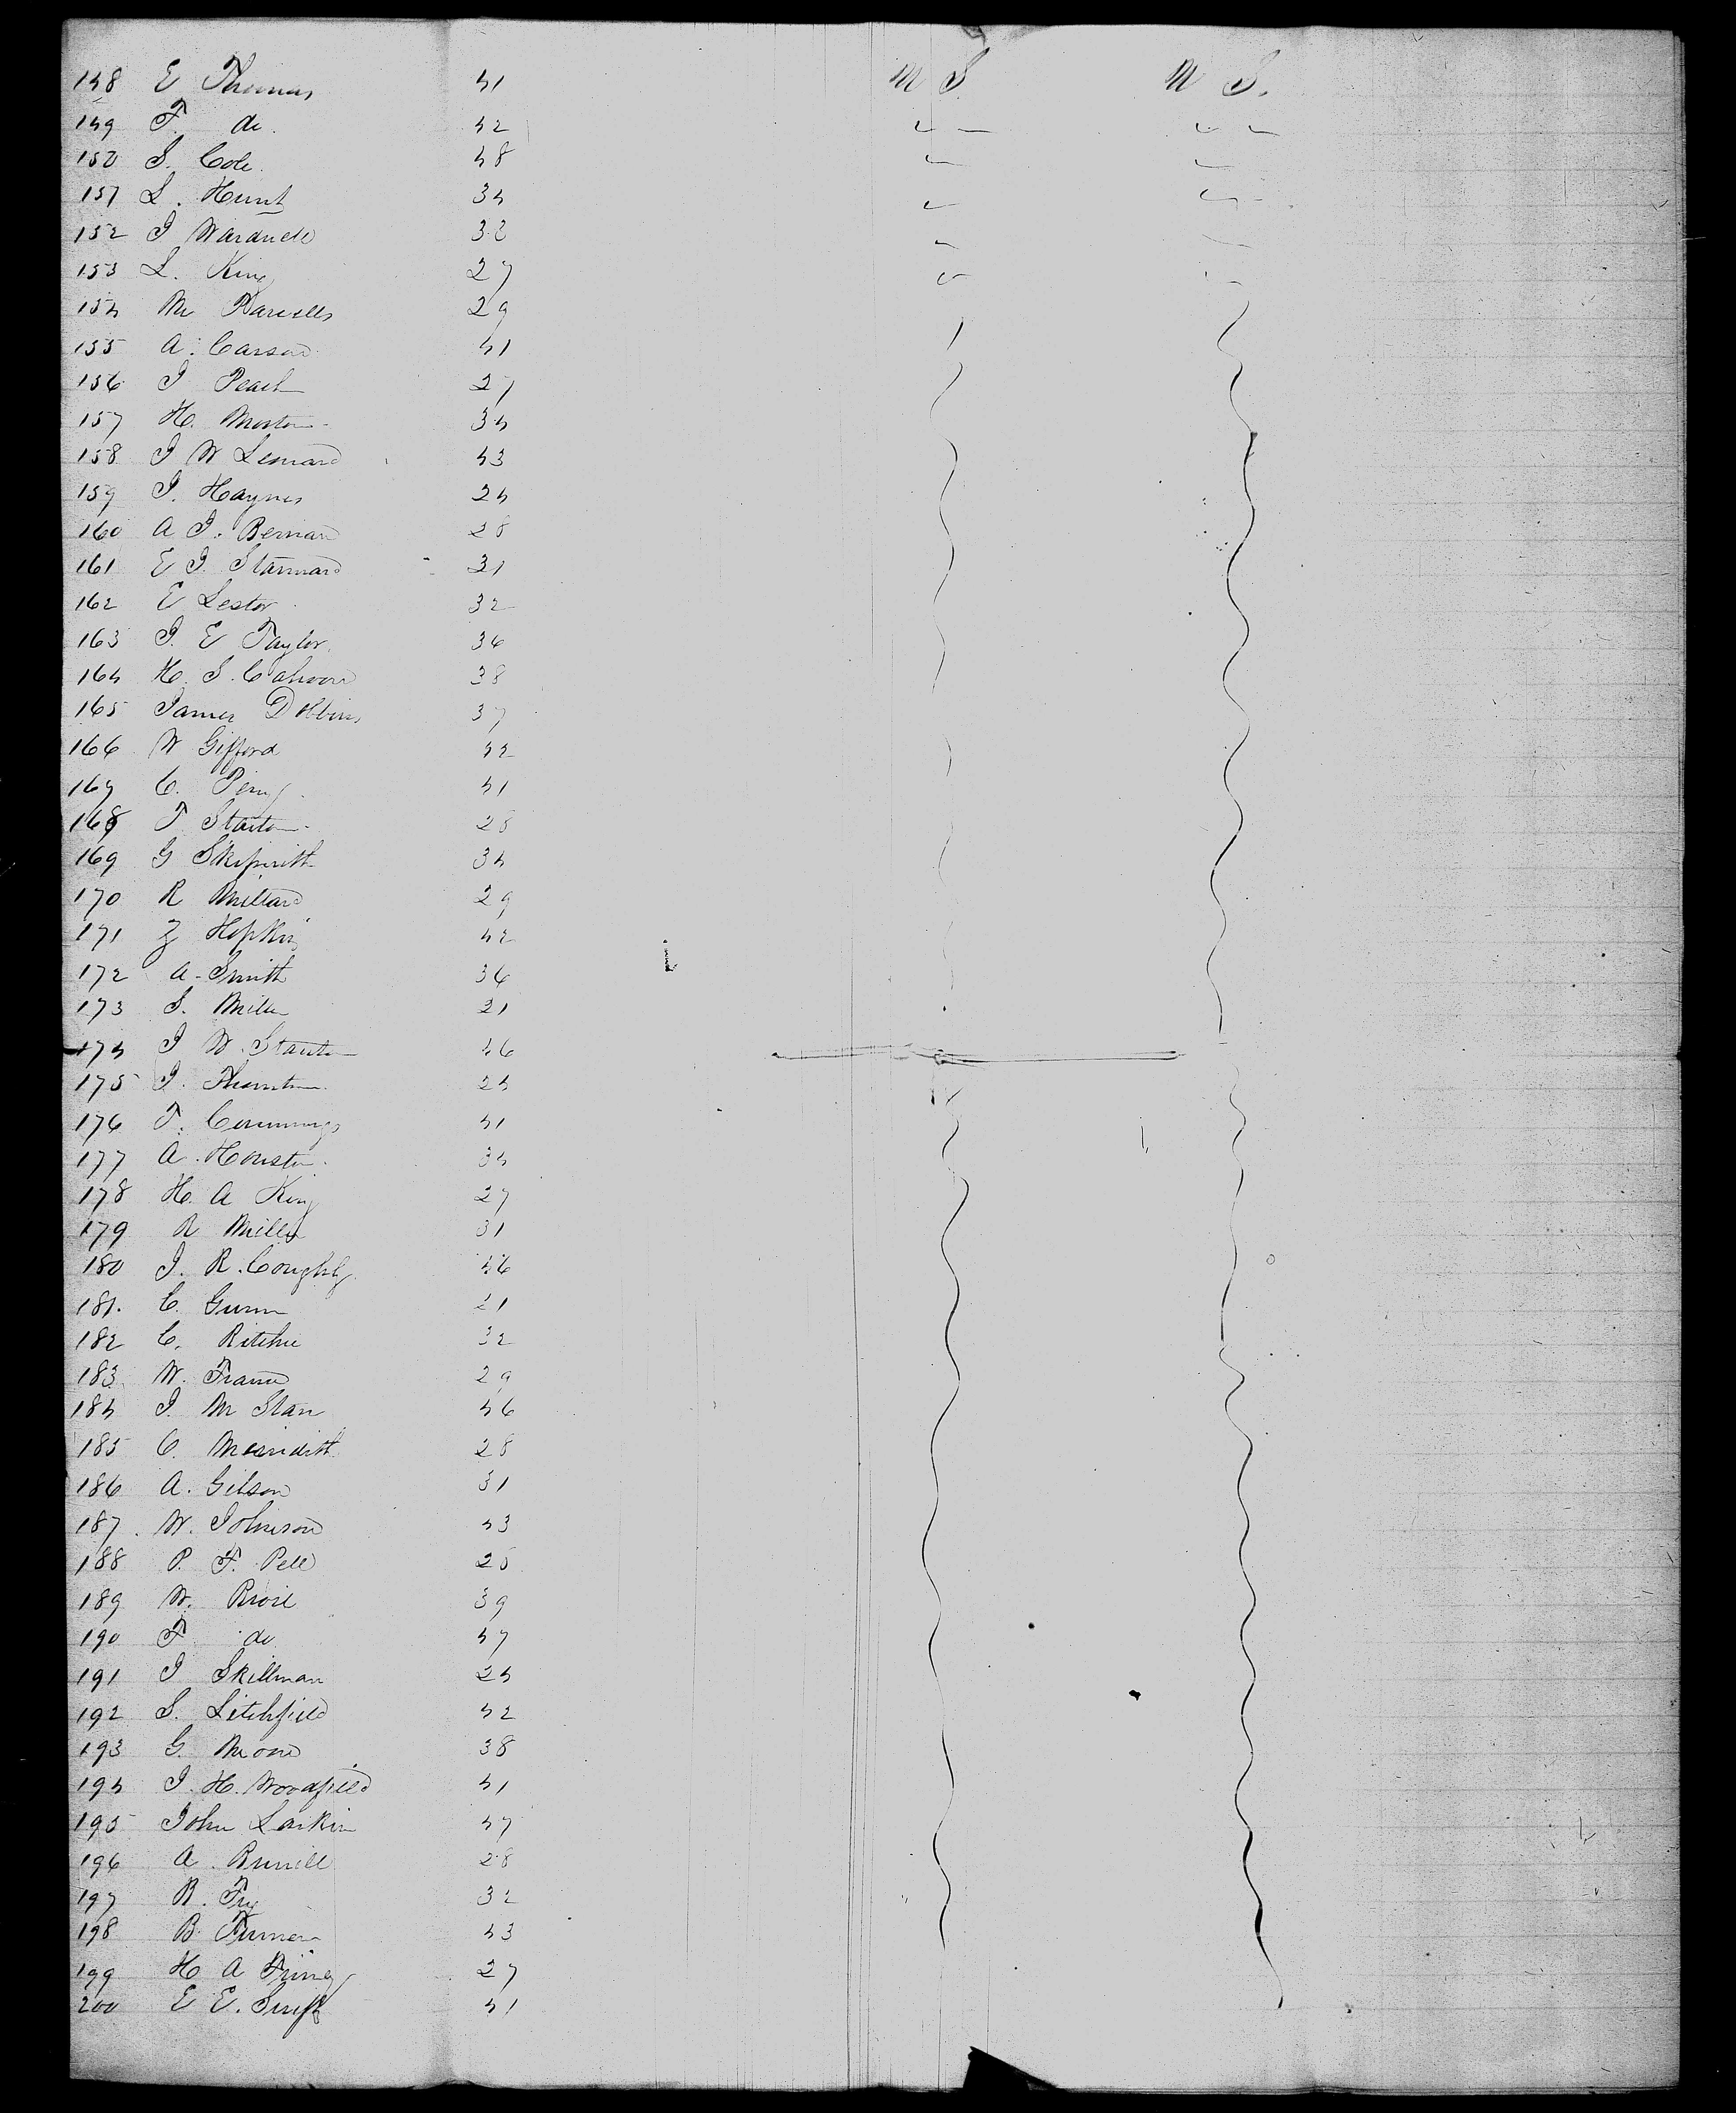 148 E Thomas 41 M S. M S.
149 F. do. 42
150 S. Cole. 48
151 L. Hunt 34
152 J Wardwell 32
153 L. King 27
154 M 29
155 A. Carson 41
156 J Peach 27
157 H. Morton 34
158 J W Lenard 43
159 J. Haynes 24
160 A J. Bernard 28
161 E J. Stannard 31
162 E Lester 32
163 J. E Taylor. 36
164 H. S. Calhoon 38
165 James Dobbins 37
166 W Gifford 42
167 C. Perry 41
168 T Staiton 28
169 G Skipwith 34
170 R Millard 29
171 Z Hopkins 42
172 A. Smith 36
173 S. Miller 21
174 J W. Stanton 46
175 J. Thornton 24
176 T. Cummings 41
177 A. Houston 34
178 H. A King 27
179 R Miller 31
180 J. R. 46
181. C. Gunn 21
182 C. Ritchie 32
183 W. 29
184 J. M Starr 46
185 C. Merridith 28
186 A. Gibson 31
187. W. Johnson 43
188 P. F. Pell 25
189 W. 39
190 F do 47
191 J Skillman 24
192 S. Litchfield 42
193 G. Moore 38
194 J. H. Woodfield 41
195 John Larkin 47
196 A. 28
197 R. Fry 32
198 B. Turner 43
199 H A 27
200 E E. Swift 41